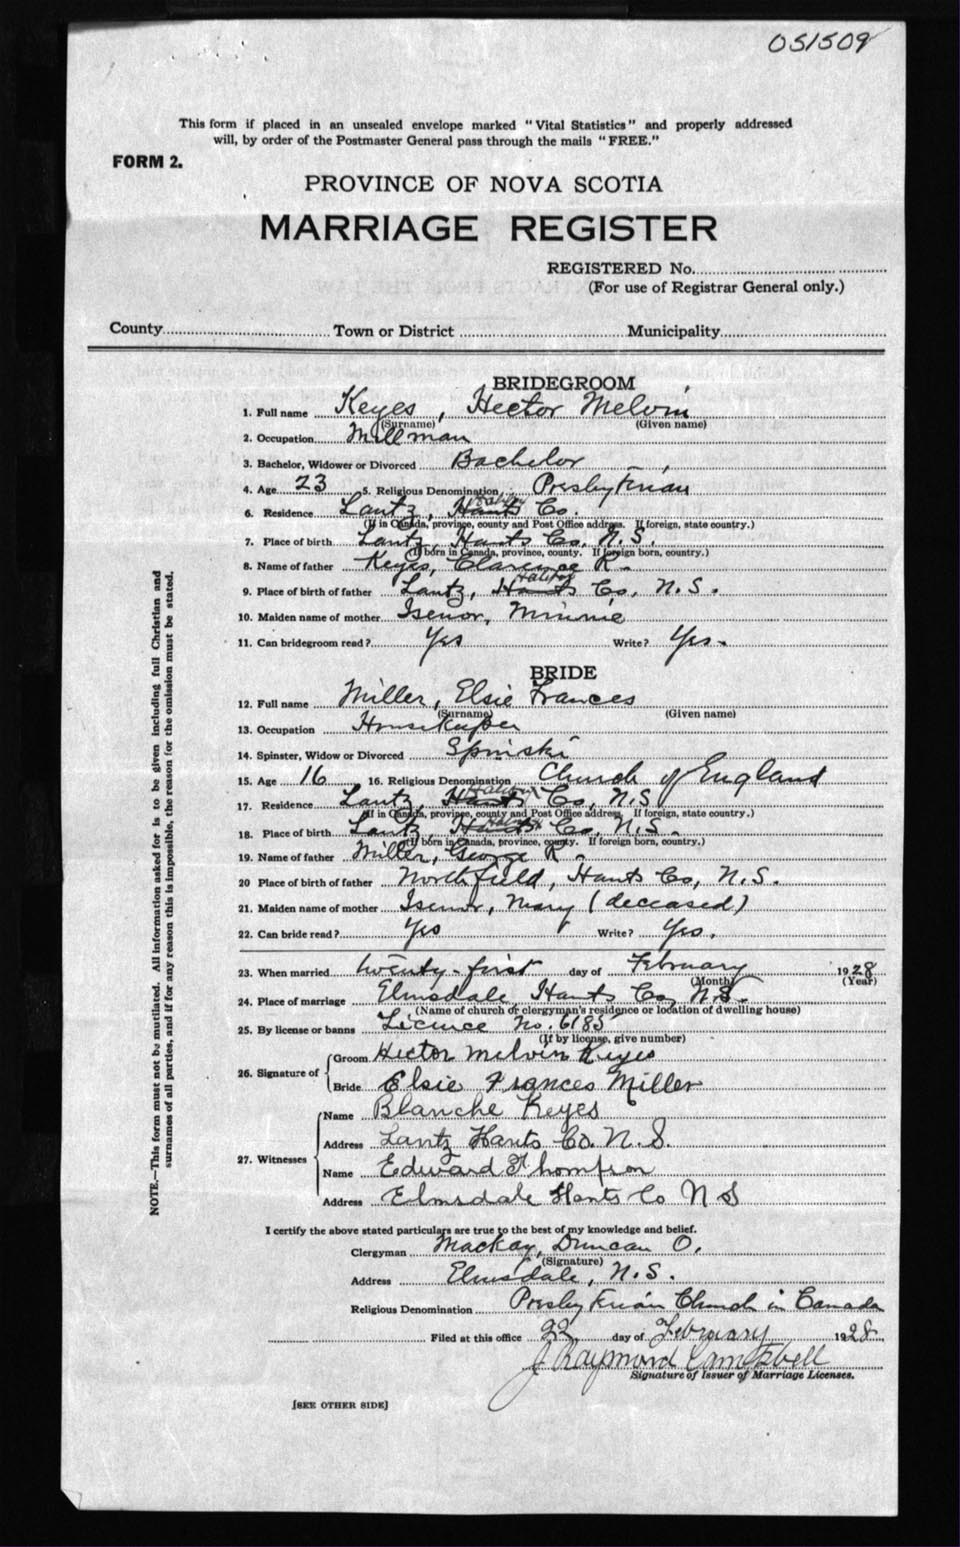 051509
This form if placed in an unsealed envelope marked "Vital Statistics" and properly addressed
will, by order of the Postmaster General pass through the mails "FREE."
FORM 2.
PROVINCE OF NOVA SCOTIA
MARRIAGE REGISTER
REGISTERED No.
(For use of Registrar General only.)
County Town or District Municipality
BRIDEGROOM
1. Full name Keyes, Hector Melvin
(Surname) (Given name)
2. Occupation Millman
3. Bachelor, Widower or Divorced Bachelor
4. Age 23 5. Religious Denomination Presbyterian
Halifax
6. Residence Lantz, Hants Co.
(If in Canada, province, county and Post Office address. If foreign, state country.)
7. Place of birth Lantz, Hants Co, N.S.
(If born in Canada, province, county. If foreign born, country.)
8. Name of father Keyes, Clarence R.
Halifax
9. Place of birth of father Lantz, Hants Co, N.S.
10. Maiden name of mother Isenor, Minnie
11. Can bridegroom read? Yes Write? Yes.
BRIDE
12. Full name Miller, Elsie Frances
(Surname) (Given name)
13. Occupation Housekeeper
14. Spinster, Widow or Divorced
15. Age 16 16. Religious Denomination Church of England
Halifax
17. Residence Lantz, Hants Co, N.S
(If in Canada, province, county and Post Office address. If foreign, state country.)
Halifax
18. Place of birth Lantz, Hants Co, N.S.
(If born in Canada, province, county. If foreign born, country.)
19. Name of father Miller, George R.
20 Place of birth of father Northfield, Hants Co, N.S.
21. Maiden name of mother Isenor, Mary (deceased)
22. Can bride read? Yes Write? Yes.
23. When married twenty-first day of February 1928
(Month) (Year)
24. Place of marriage Elmsdale, Hants Co, N.S.
(Name of church or clergyman's residence or location of dwelling house)
25. By license or banns Licence No. 6185
(If by license, give number)
26. Signature of Groom Hector Melvin Keyes
Bride Elsie Frances Miller
27. Witnesses Name Blanche Keyes
Address Lantz Hants Co. N.S.
Name Edward Thompson
Address Elmsdale Hants Co N S
I certify the above stated particulars are true to the best of my knowledge and belief.
Clergyman MacKay, Duncan O.
(Signature)
Address Elmsdale, N.S.
Religious Denomination Presbyterian Church in Canada
Filed at this office 22 day of February 1928
J Raymond Campbell
Signature of Issuer of Marriage Licenses.
[SEE OTHER SIDE]
NOTE.—This form must not be mutilated. All information asked for is to be given including full Christian and
surnames of all parties, and if for any reason this is impossible, the reason for the omission must be stated.